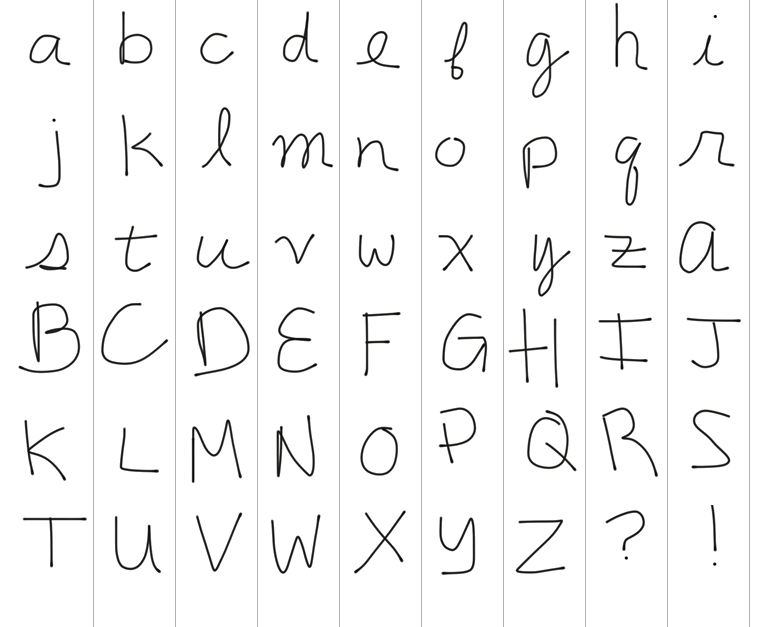 a b c d e f g h i
j k l m n o p q r
s t u v w x y z a
B C D E F G H I J
K L M N O P Q R S
T U V W X Y Z ? !